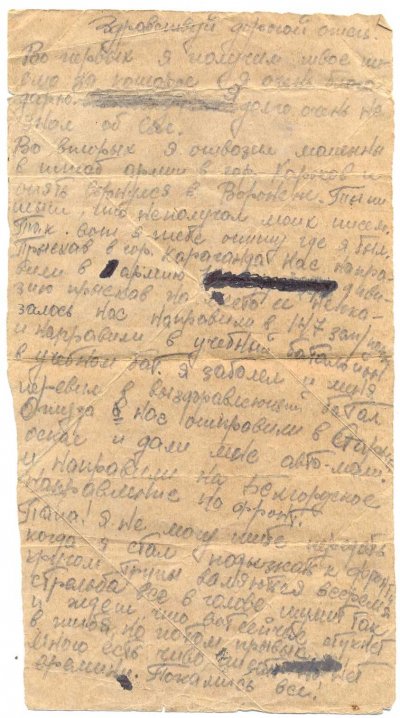 Здравствуй дорогой отец.
Во первых я получил твое пи-
сьмо за которое я очень благо-
дарю. Я долго очень не
знал об
Во вторых я отвозил машины
в штаб армии в гор. Харьков и
опять вернулся в Воронеж. Ты пи-
шеш, что неполучал моих писем.
Так вот я тебе опишу где я был.
Приехав в гор. Караганда нас напра-
вили в армию диви-
зию приехав на место ее неока-
залось нас направили в 147 зап.
и направили в учебный батальйон
в учебном бат. я заболел и меня
перевели в выздравлеющей батал.
Оттуда нас отправили в Старый
оскол и дали мне авто-маш.
и направили на Белгородское
направление на фронт.
Папа! Я не могу тебе передать
когда я стал подъезжать к фронту
кругом трупы валяются
стрельба все в голове шумит так
и ждеш что вот сейчас стукнет
в но потом привык.
много есть чево нет
времени. Покамись все!